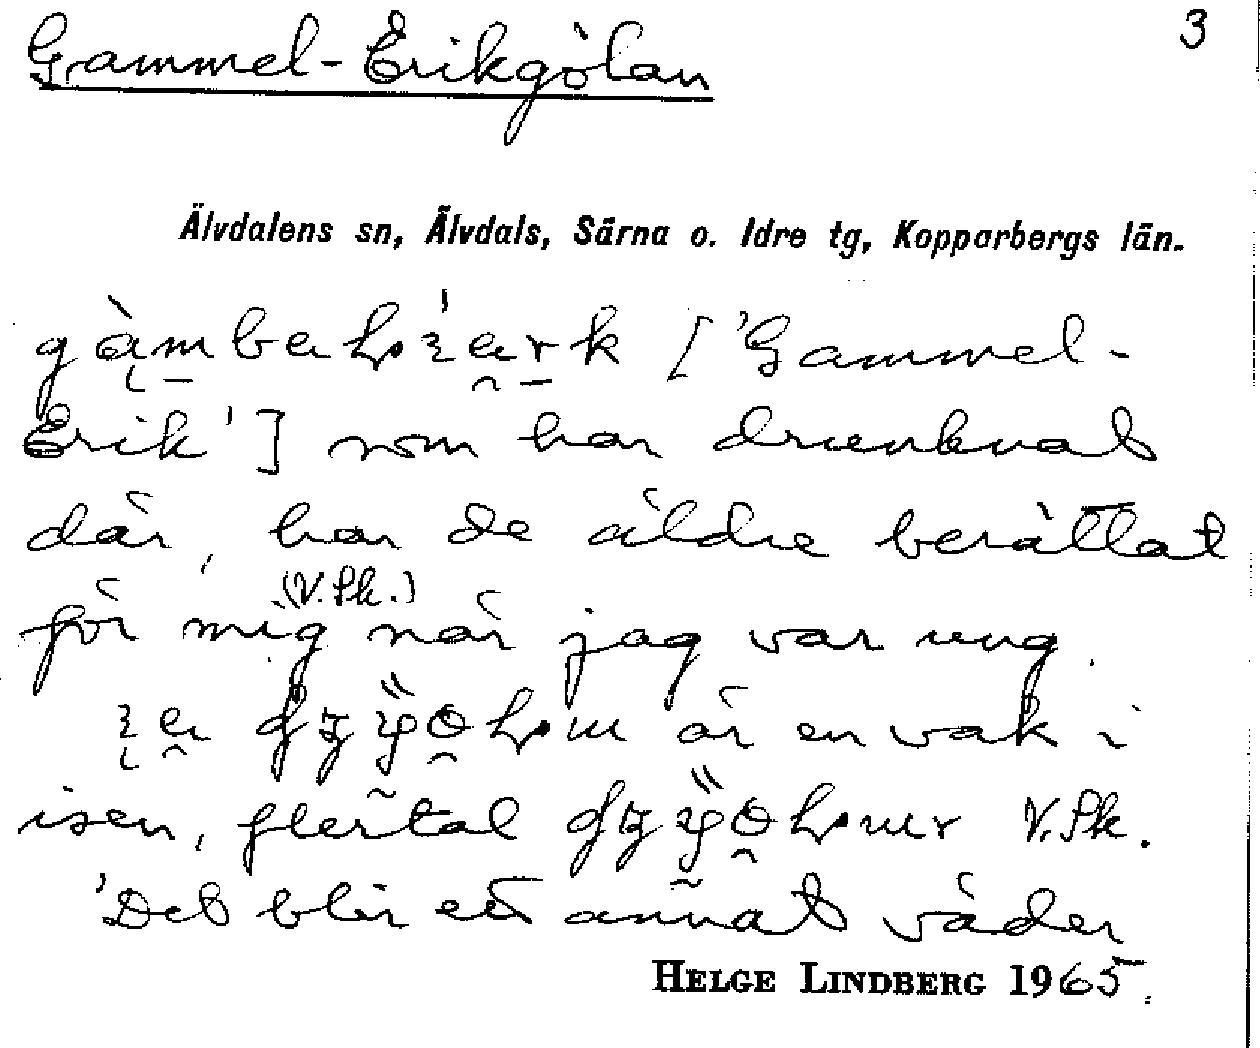 3
Gammel-Erikgölan
Älvdalens sn, Älvdals, Särna o. Idre tg, Kopparbergs län.
['Gammel-
Erik'] som har drunknat
där, har de äldre berättat
(V.Sk.)
för mig när jag var ung.
är en vak i
isen, flertal V.Sk.
'Det blir ett annat väder
HELGE LINDBERG 1965.